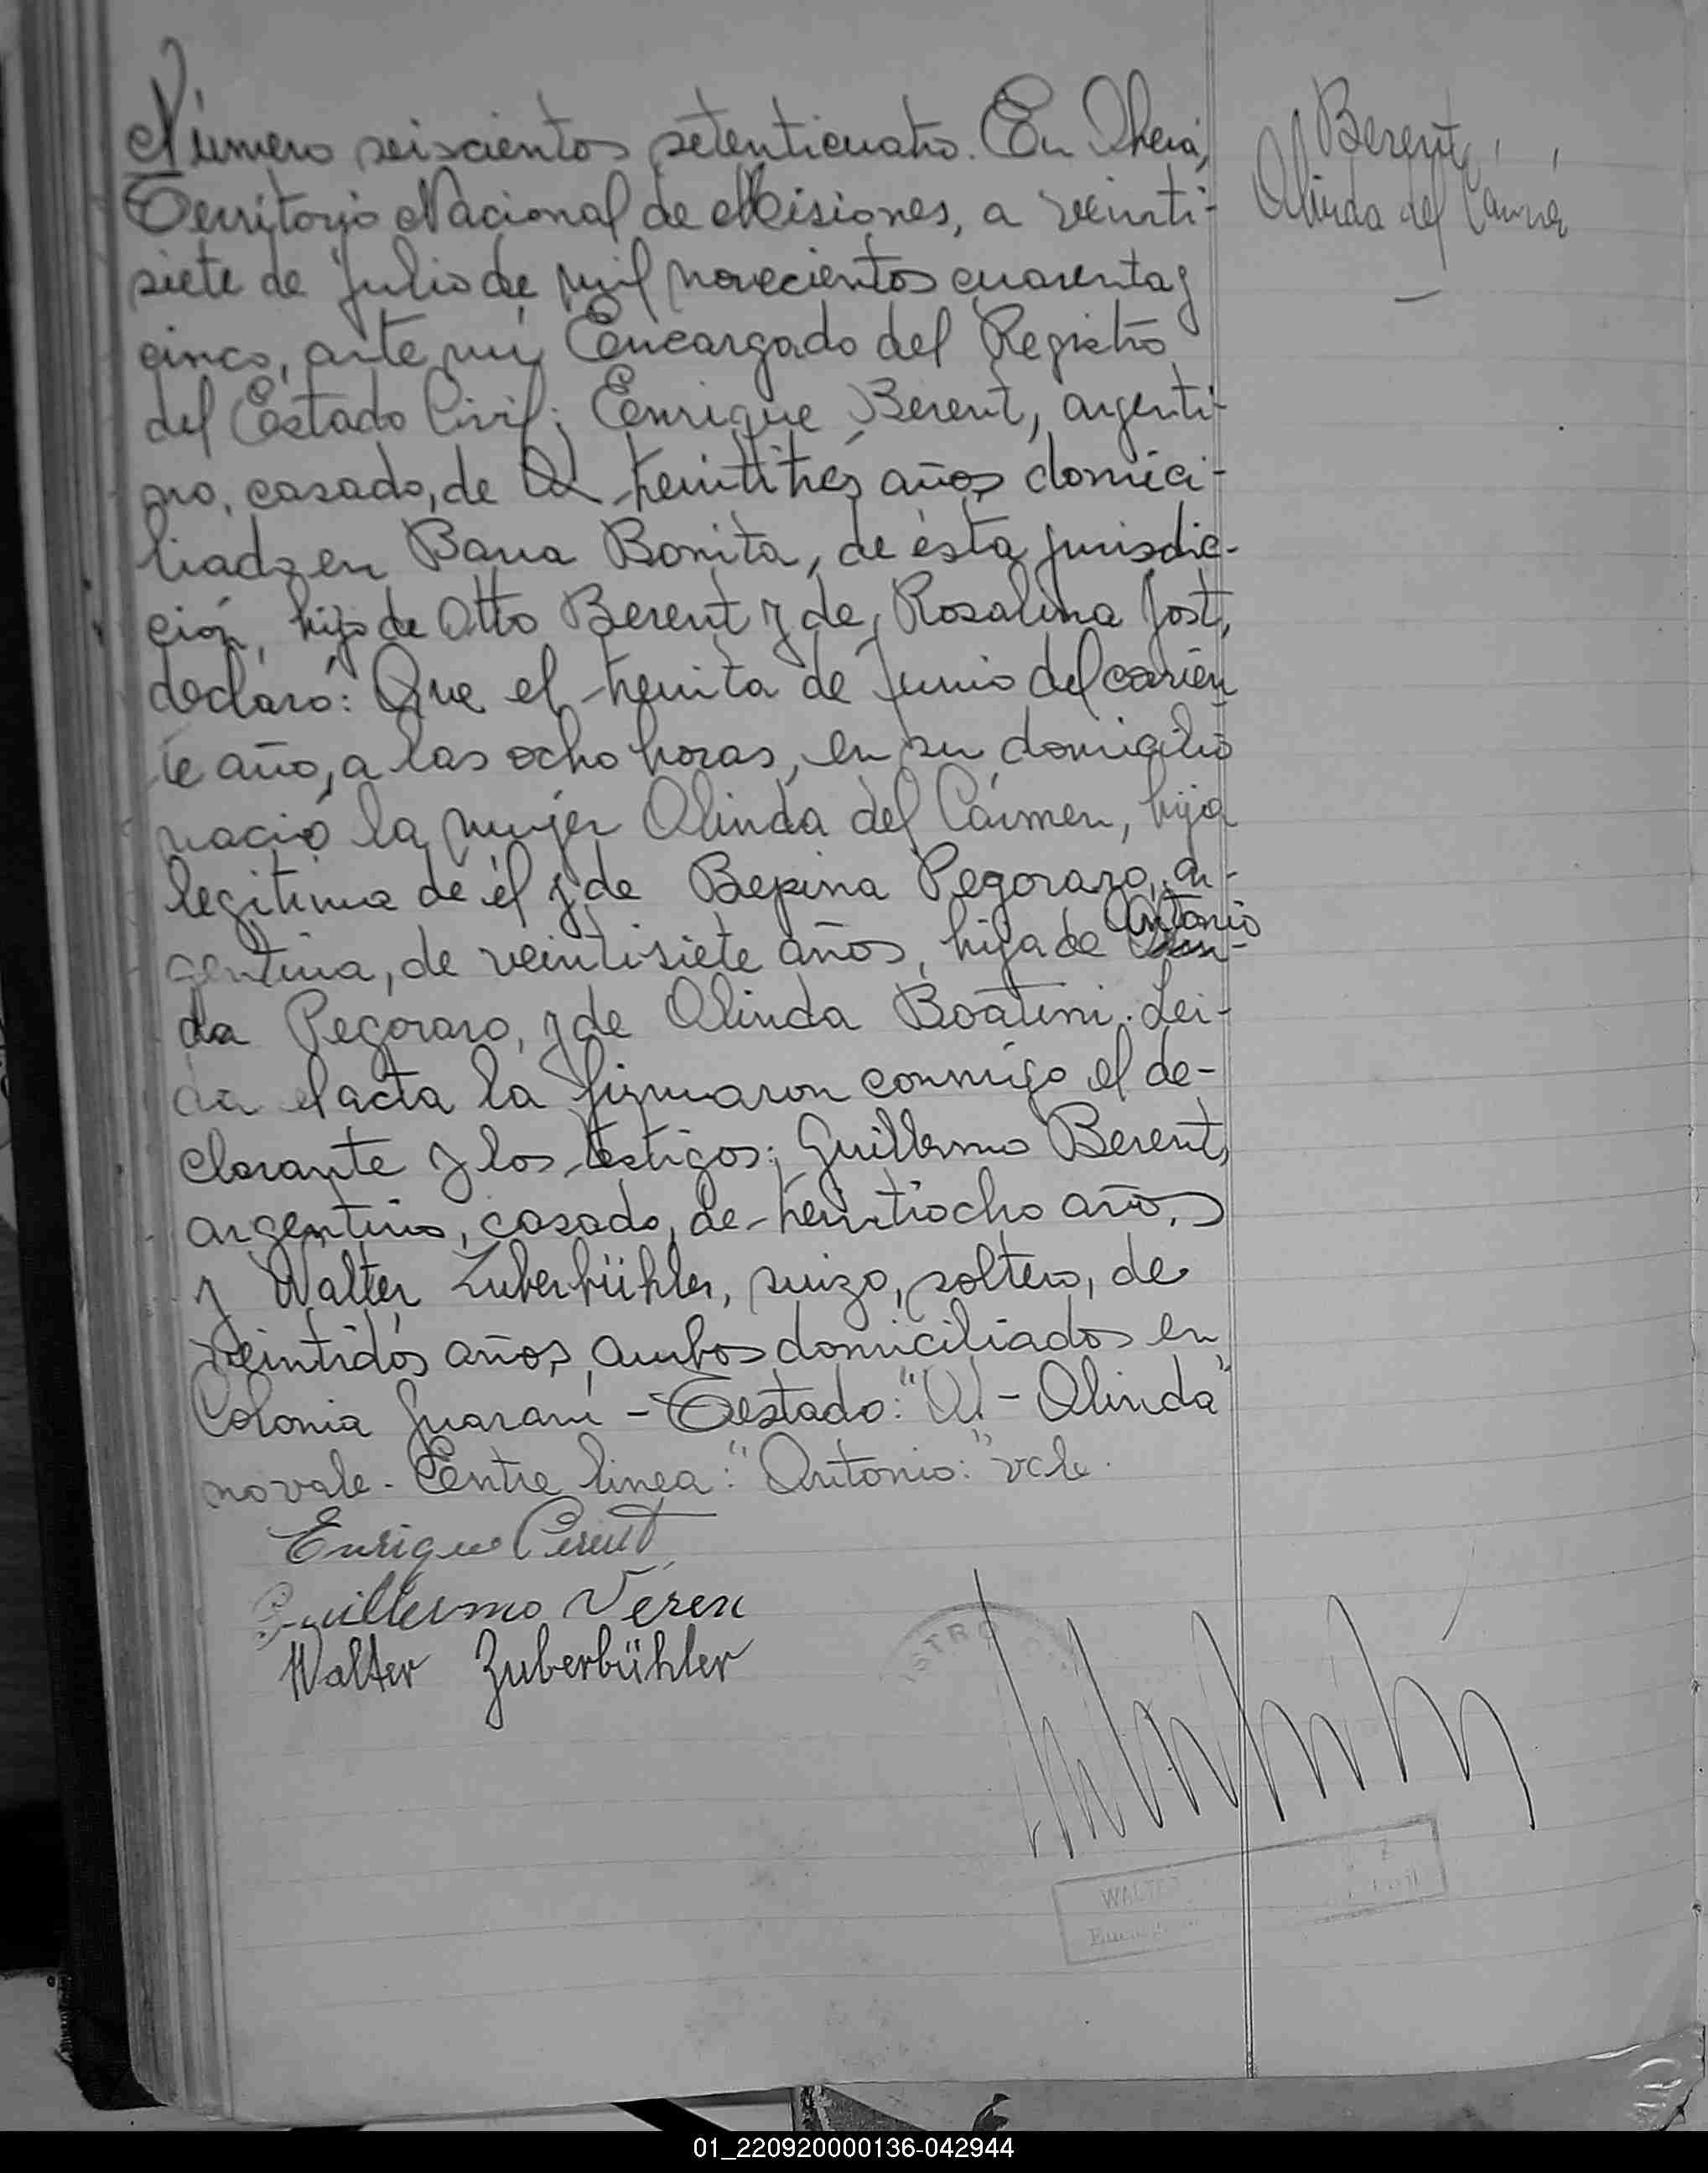 Número seiscientos setenticuatro. En Oberá,
Territorio Nacional de Misiones, a veinti-
siete de Julio de mil novecientos cuarenta y
cinco, ante mí Encargado del Registro
del Estado Civil; Enrique Berent, argenti-
no, casado, de treintitrés años domici-
liado en Barra Bonita, de ésta jurisdic-
ción, hijo de Otto Berent y de Rosalina Jost,
declaró: Que el treinta de Junio del corrien
te año, a las ocho horas, en su domicilio
nació la mujer Olinda del Cármen, hija
legítima de él y de Bepina Pegoraro, ar-
gentina, de veintisiete años, hija de Antonio
da Pegoraro, y de Olinda Boatini. Lei-
da el acta la firmaron conmigo el de-
clarante y los testigos: Guillermo Berent,
argentino, casado, de treintiocho años
y Walter Zuberbühler, suizo, soltero, de
veintidós años, ambos domiciliados en
Colonia Guaraní - Testado: "Ol - Olinda"
no vale. Entre linea: "Antonio:" vale.
Enrique Berent
Guillermo Veren
Walter Zuberbühler
Berent,
Olinda del Cármen
ISTRO
WALTE
01_220920000136-042944